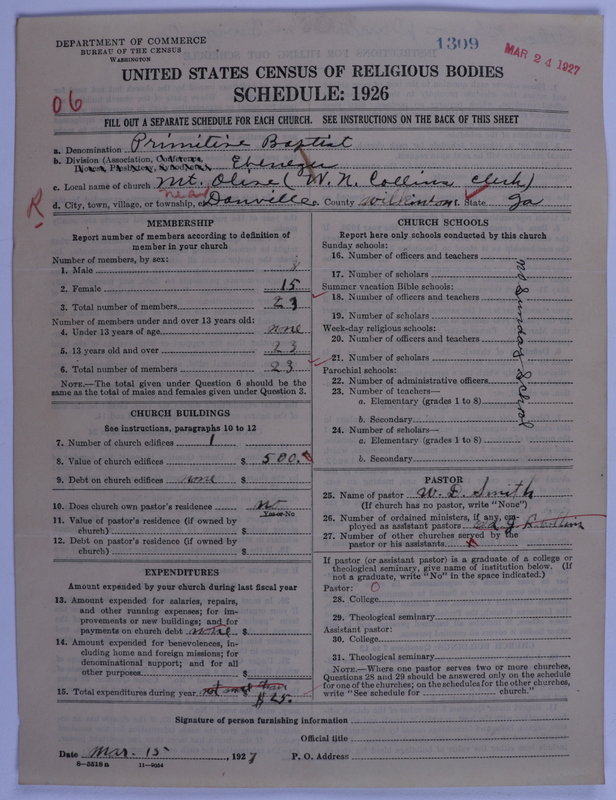 DEPARTMENT OF COMMERCE
BUREAU OF THE CENSUS
WASHINGTON
1309
MAR 24 1927
UNITED STATES CENSUS OF RELIGIOUS BODIES
SCHEDULE: 1926
06
FILL OUT A SEPARATE SCHEDULE FOR EACH CHURCH. SEE INSTRUCTIONS ON THE BACK OF THIS SHEET
a. Denomination Primitive Baptist
b. Division (Association, Conference, Ebenezer
Diocese, Presbytery, Synod, etc.)
c. Local name of church Mt. Olive (W. N. Collins Clerk)
near
R d. City, town, village, or township, Danville e. County Wilkinson f. State Ga
MEMBERSHIP
Report number of members according to definition of
member in your church
Number of members, by sex:
1. Male 8
2. Female 15
3. Total number of members 23
Number of members under and over 13 years old:
4. Under 13 years of age none
5. 13 years old and over 23
6. Total number of members 23
NOTE.—The total given under Question 6 should be the
same as the total of males and females given under Question 3.
CHURCH BUILDINGS
See instructions, paragraphs 10 to 12
7. Number of church edifices 1
8. Value of church edifices $ 500.
9. Debt on church edifices none $
10. Does church own pastor's residence No
Yes or No
11. Value of pastor's residence (if owned by
church) $
12. Debt on pastor's residence (if owned by
church) $
EXPENDITURES
Amount expended by your church during last fiscal year
13. Amount expended for salaries, repairs,
and other running expenses; for im-
provements or new buildings; and for
payments on church debt none $
14. Amount expended for benevolences, in-
cluding home and foreign missions; for
denominational support; and for all
other purposes $
15. Total expenditures during year not more than
$25.
CHURCH SCHOOLS
Report here only schools conducted by this church
Sunday schools:
16. Number of officers and teachers
17. Number of scholars
Summer vacation Bible schools:
18. Number of officers and teachers
19. Number of scholars
Week-day religious schools:
20. Number of officers and teachers
21. Number of scholars
Parochial schools:
22. Number of administrative officers
23. Number of teachers—
a. Elementary (grades 1 to 8)
b. Secondary
24. Number of scholars—
a. Elementary (grades 1 to 8)
b. Secondary
no Sunday School
PASTOR
25. Name of pastor W. D. Smith
(If church has no pastor, write "None")
26. Number of ordained ministers, if any, em-
ployed as assistant pastors Collins
27. Number of other churches served by the
pastor or his assistants
If pastor (or assistant pastor) is a graduate of a college or
theological seminary, give name of institution below. (If
not a graduate, write "No" in the space indicated.)
Pastor: 0
28. College
29. Theological seminary
Assistant pastor:
30. College
31. Theological seminary
NOTE.—Where one pastor serves two or more churches,
Questions 28 and 29 should be answered only on the schedule
for one of the churches; on the schedules for the other churches,
write "See schedule for church."
Signature of person furnishing information
Official title
Date Mar. 15 1927 P. O. Address
8-5518a 11-9054